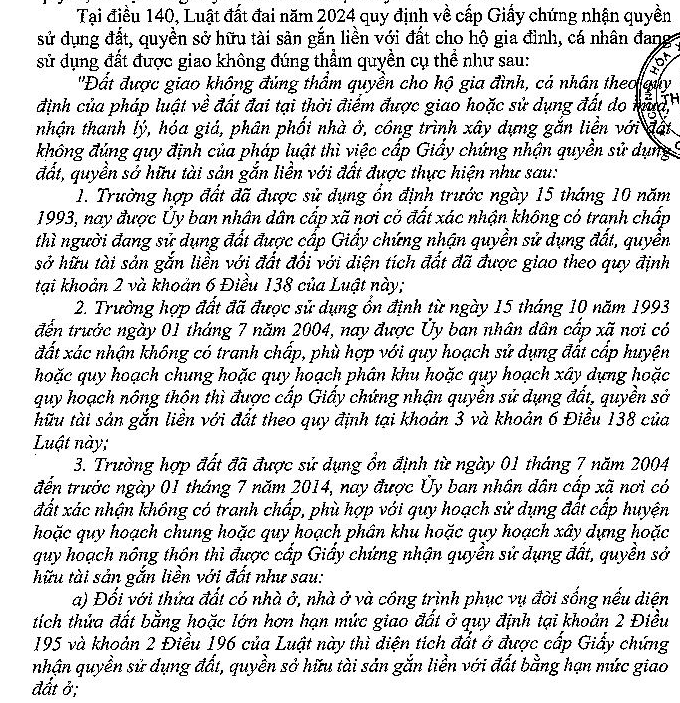 Tại điều 140, Luật đất đai năm 2024 quy định về cấp Giấy chứng nhận quyền
sử dụng đất, quyền sở hữu tài sản gắn liền với đất cho hộ gia đình, cá nhân đang
sử dụng đất được giao không đúng thẩm quyền cụ thể như sau:
"Đất được giao không đúng thẩm quyền cho hộ gia đình, cá nhân theo quy
định của pháp luật về đất đai tại thời điểm được giao hoặc sử dụng đất do mua,
nhận thanh lý, hóa giá, phân phối nhà ở, công trình xây dựng gắn liền với đất
không đúng quy định của pháp luật thì việc cấp Giấy chứng nhận quyền sử dụng
đất, quyền sở hữu tài sản gắn liền với đất được thực hiện như sau:
1. Trường hợp đất đã được sử dụng ổn định trước ngày 15 tháng 10 năm
1993, nay được Ủy ban nhân dân cấp xã nơi có đất xác nhận không có tranh chấp
thì người đang sử dụng đất được cấp Giấy chứng nhận quyền sử dụng đất, quyền
sở hữu tài sản gắn liền với đất đối với diện tích đất đã được giao theo quy định
tại khoản 2 và khoản 6 Điều 138 của Luật này;
2. Trường hợp đất đã được sử dụng ổn định từ ngày 15 tháng 10 năm 1993
đến trước ngày 01 tháng 7 năm 2004, nay được Ủy ban nhân dân cấp xã nơi có
đất xác nhận không có tranh chấp, phù hợp với quy hoạch sử dụng đất cấp huyện
hoặc quy hoạch chung hoặc quy hoạch phân khu hoặc quy hoạch xây dựng hoặc
quy hoạch nông thôn thì được cấp Giấy chứng nhận quyền sử dụng đất, quyền sở
hữu tài sản gắn liền với đất theo quy định tại khoản 3 và khoản 6 Điều 138 của
Luật này;
3. Trường hợp đất đã được sử dụng ổn định từ ngày 01 tháng 7 năm 2004
đến trước ngày 01 tháng 7 năm 2014, nay được Ủy ban nhân dân cấp xã nơi có
đất xác nhận không có tranh chấp, phù hợp với quy hoạch sử dụng đất cấp huyện
hoặc quy hoạch chung hoặc quy hoạch phân khu hoặc quy hoạch xây dựng hoặc
quy hoạch nông thôn thì được cấp Giấy chứng nhận quyền sử dụng đất, quyền sở
hữu tài sản gắn liền với đất như sau:
a) Đối với thửa đất có nhà ở, nhà ở và công trình phục vụ đời sống nếu diện
tích thửa đất bằng hoặc lớn hơn hạn mức giao đất ở quy định tại khoản 2 Điều
195 và khoản 2 Điều 196 của Luật này thì diện tích đất ở được cấp Giấy chứng
nhận quyền sử dụng đất, quyền sở hữu tài sản gắn liền với đất bằng hạn mức giao
đất ở;